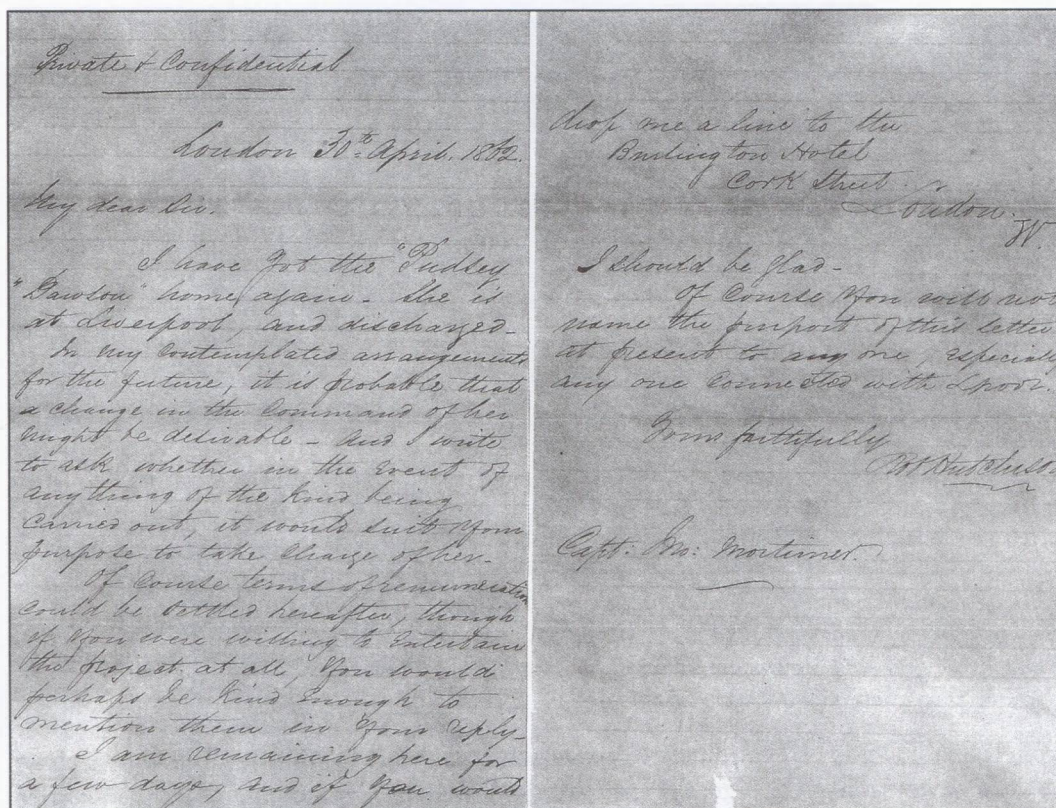 Private & Confidential
London 30th April. 1862.
My dear Sir.
I have got the "Pudsey
"Dawson" home again - She is
at Liverpool, and discharged -
In my contemplated arrangements
for the future, it is probable that
a change in the command of her
might be desirable - and I write
to ask whether in the event of
anything of the kind being
carried out, it would suit your
purpose to take charge of her -
Of course terms of remuneration
could be settled hereafter, though
if you were willing to entertain
the project at all, you would
perhaps be kind enough to
mention them in your reply -
I am remaining here for
a few days, and if you would
drop me a line to the
Burlington Hotel
Cork Street.
London.
W.
I should be glad -
Of course you will not
name the purport of this letter
at present to any one, especially
any one connected with Lpool.
Yours faithfully
Robt Hutchison
Capt: Jno: Mortimer